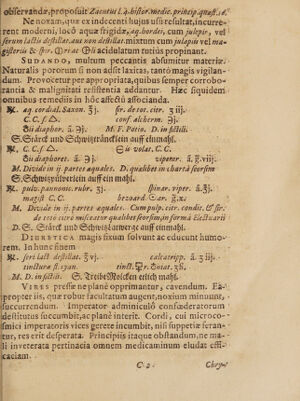 observandæ, proposuit Zacutus L. 4. histor. medic. princip. quæst. 14.
Ne noxam, quæ ex indecenti hujus usu resultat, incurre-
rent moderni, locô aquæ frigidæ, aq. hordei, cum julepis, vel
serum lactis destillat. aut non destillat. mixtum cum julapiis vel ma-
gisteriis & spir. acidulatum tutius propinant.
SUDANDO, multum peccantis absumitur materiæ.
Naturalis pororum si non adsit laxitas, tantô magis vigilan-
dum. Provocetur pro re appropriata, quibus semper corrobo-
rantia & malignitati resistentia addantur. Hæc siquidem
omnibus remediis in hôc affectu associanda.
℞. aq. cordial. Saxon. ʒj. sir. de tot. citr. ʒ iij.
C. C. f. conf. alchermi. ℈j.
diaphor. ā ℈j. M. F. Potio. D. in fictili.
S. Stärck und Schwitzträncklein auff einmahl.
℞. C. C. f. volat. C. C.
diaphoret. ā ℈j. viperar. ā g. viij.
M. Divide in ij. partes æquales. D. quālibet in chartâ seorsim
S. Schwitzpülverlein auff ein mahl.
℞. pulv. pannonic. rubr. ʒj. spinar. viper. ā ʒj.
magist. C. C. bezoard. or. g. x.
M. Divide in ij. partes æquales. Cum pulp. citri. condit. & sir.
de toto citro misceatur quælibet seorsim, in formâ Electuarii
D. S. Stärck und Schwitzlatwerge auff einmahl.
DIURETICA magis fixum solvunt ac educunt humo-
rem. In hunc finem
℞. seri lact. destillat. ℥vj. calcatripp. ā ℥iij.
tincturæ
M. D. in fictili. S. Treibe Molcken etlich mahl.
VIRES præsse ne planè opprimantur, cavendum. Ea-
propter iis, quæ robur facultatum augent, noxium minuunt,
succurrendum. Imperator adminiculô consœderatorum
destitutus succumbit, ac planè interit. Cordi, cui microcos-
mici imperatoris vices gerere incumbit, nisi suppetiæ feran-
tur, res erit desperata. Principiis itaque obstandum, ne ma-
li inveterata pertinacia omnem medicamen eludat effi-
caciam.
C 2 Chry-